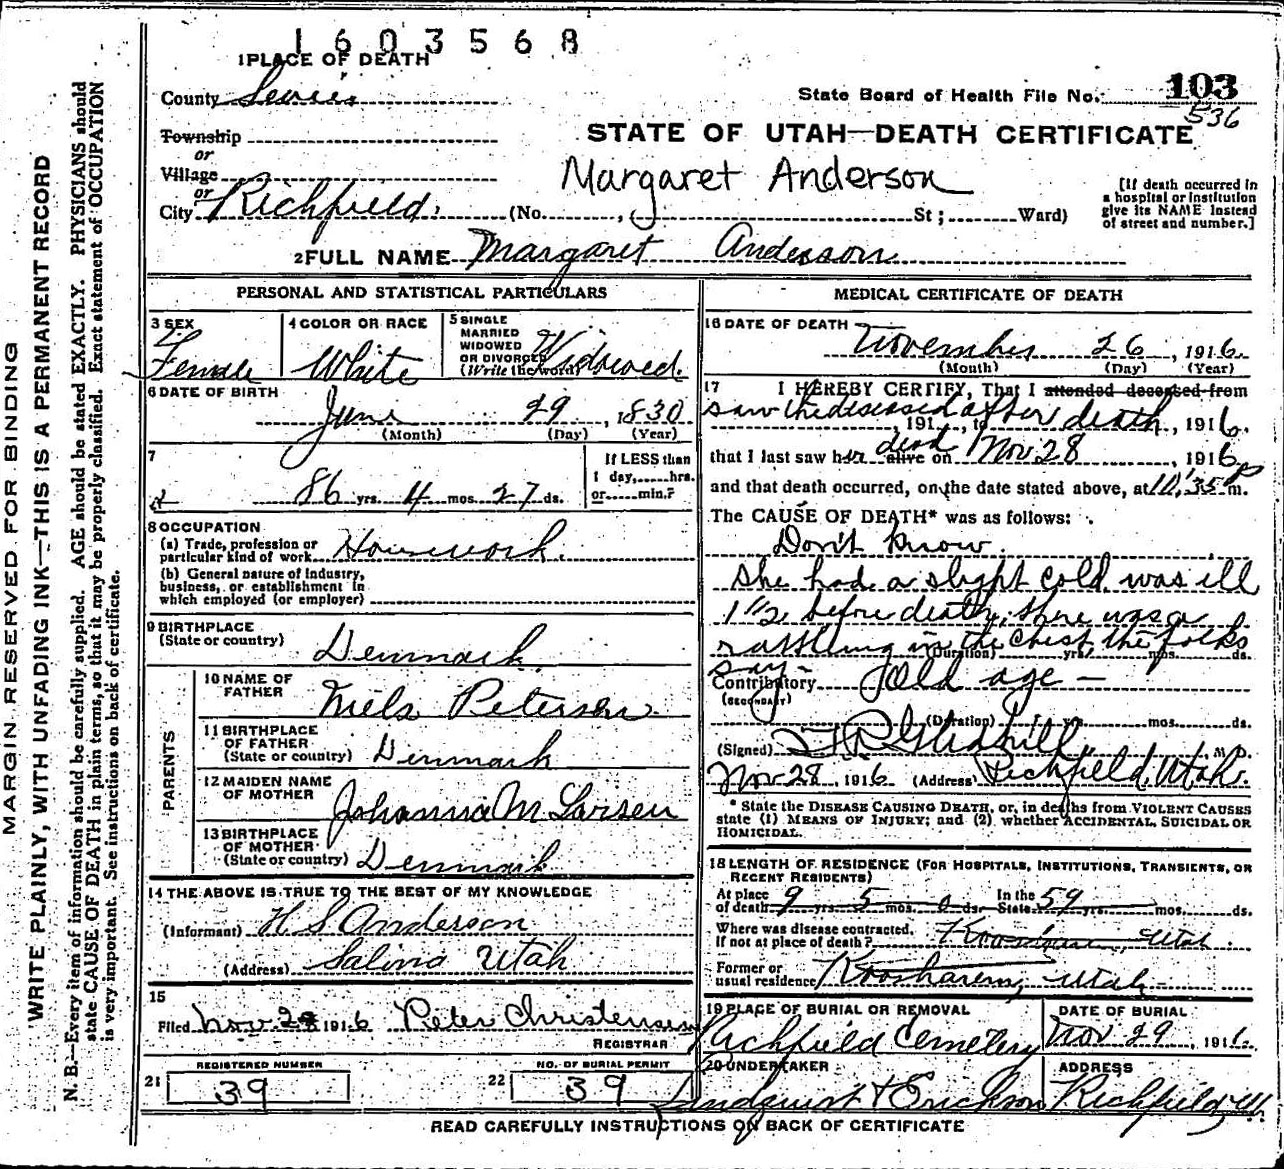 1603568
1 PLACE OF DEATH
County Sevier
State Board of Health File No. 103
536
Township
or
Village
or
City Richfield. (No. , St; Ward)
STATE OF UTAH—DEATH CERTIFICATE
Margaret Anderson
[If death occurred in
a hospital or institution
give its NAME instead
of street and number.]
2 FULL NAME Margaret Anderson
PERSONAL AND STATISTICAL PARTICULARS
3 SEX
Female
4 COLOR OR RACE
White
5 SINGLE
MARRIED
WIDOWED
OR DIVORCED
(Write the word)
Widowed.
6 DATE OF BIRTH
June 29, 1830
(Month) (Day) (Year)
7
86 yrs. 4 mos. 27 ds.
If LESS than
1 day,.....hrs.
or......min.?
8 OCCUPATION
(a) Trade, profession or
particular kind of work Housework.
(b) General nature of industry,
business, or establishment in
which employed (or employer)
9 BIRTHPLACE
(State or country) Denmark.
PARENTS
10 NAME OF
FATHER Niels Petersen
11 BIRTHPLACE
OF FATHER
(State or country) Denmark
12 MAIDEN NAME
OF MOTHER Johanna M. Larsen
13 BIRTHPLACE
OF MOTHER
(State or country) Denmark
14 THE ABOVE IS TRUE TO THE BEST OF MY KNOWLEDGE
(Informant) H S Anderson
(Address) Salina Utah
15
Filed Nov. 28 1916 Peter Christensen
REGISTRAR
REGISTERED NUMBER
21 39
NO. OF BURIAL PERMIT
22 39
MEDICAL CERTIFICATE OF DEATH
16 DATE OF DEATH
November 26, 1916.
(Month) (Day) (Year)
17 I HEREBY CERTIFY, That I attended deceased from
saw the diseased after death
, 191 , to , 1916.
that I last saw her alive on dead Nov 28, 1916
and that death occurred, on the date stated above, at 10:35 P m.
The CAUSE OF DEATH* was as follows:
Don't know.
She had a slight cold was ill
1 1/2 before death, there was a
rattling in the chest the folks
(Duration) yrs. mos. ds.
say—
Contributory old age —
(SECONDARY)
(Duration) yrs. mos. ds.
(Signed) M. D.
Nov 28 1916 (Address) Richfield, Utah.
* State the DISEASE CAUSING DEATH, or, in deaths from VIOLENT CAUSES
state (1) MEANS OF INJURY; and (2) whether ACCIDENTAL, SUICIDAL OR
HOMICIDAL.
18 LENGTH OF RESIDENCE (FOR HOSPITALS, INSTITUTIONS, TRANSIENTS, OR
RECENT RESIDENTS)
At place
of death 9 yrs. 5 mos. 0 ds. In the
State 59 yrs. mos. ds.
Where was disease contracted,
if not at place of death? Koosharem, Utah
Former or
usual residence Koosharem, Utah—
19 PLACE OF BURIAL OR REMOVAL
Richfield Cemetery
DATE OF BURIAL
Nov 29, 1916.
20 UNDERTAKER
Lundquist & Erickson
ADDRESS
Richfield, U.
READ CAREFULLY INSTRUCTIONS ON BACK OF CERTIFICATE
MARGIN RESERVED FOR BINDING
WRITE PLAINLY, WITH UNFADING INK—THIS IS A PERMANENT RECORD
N. B.—Every item of information should be carefully supplied. AGE should be stated EXACTLY. PHYSICIANS should
state CAUSE OF DEATH in plain terms, so that it may be properly classified. Exact statement of OCCUPATION
is very important. See instructions on back of certificate.